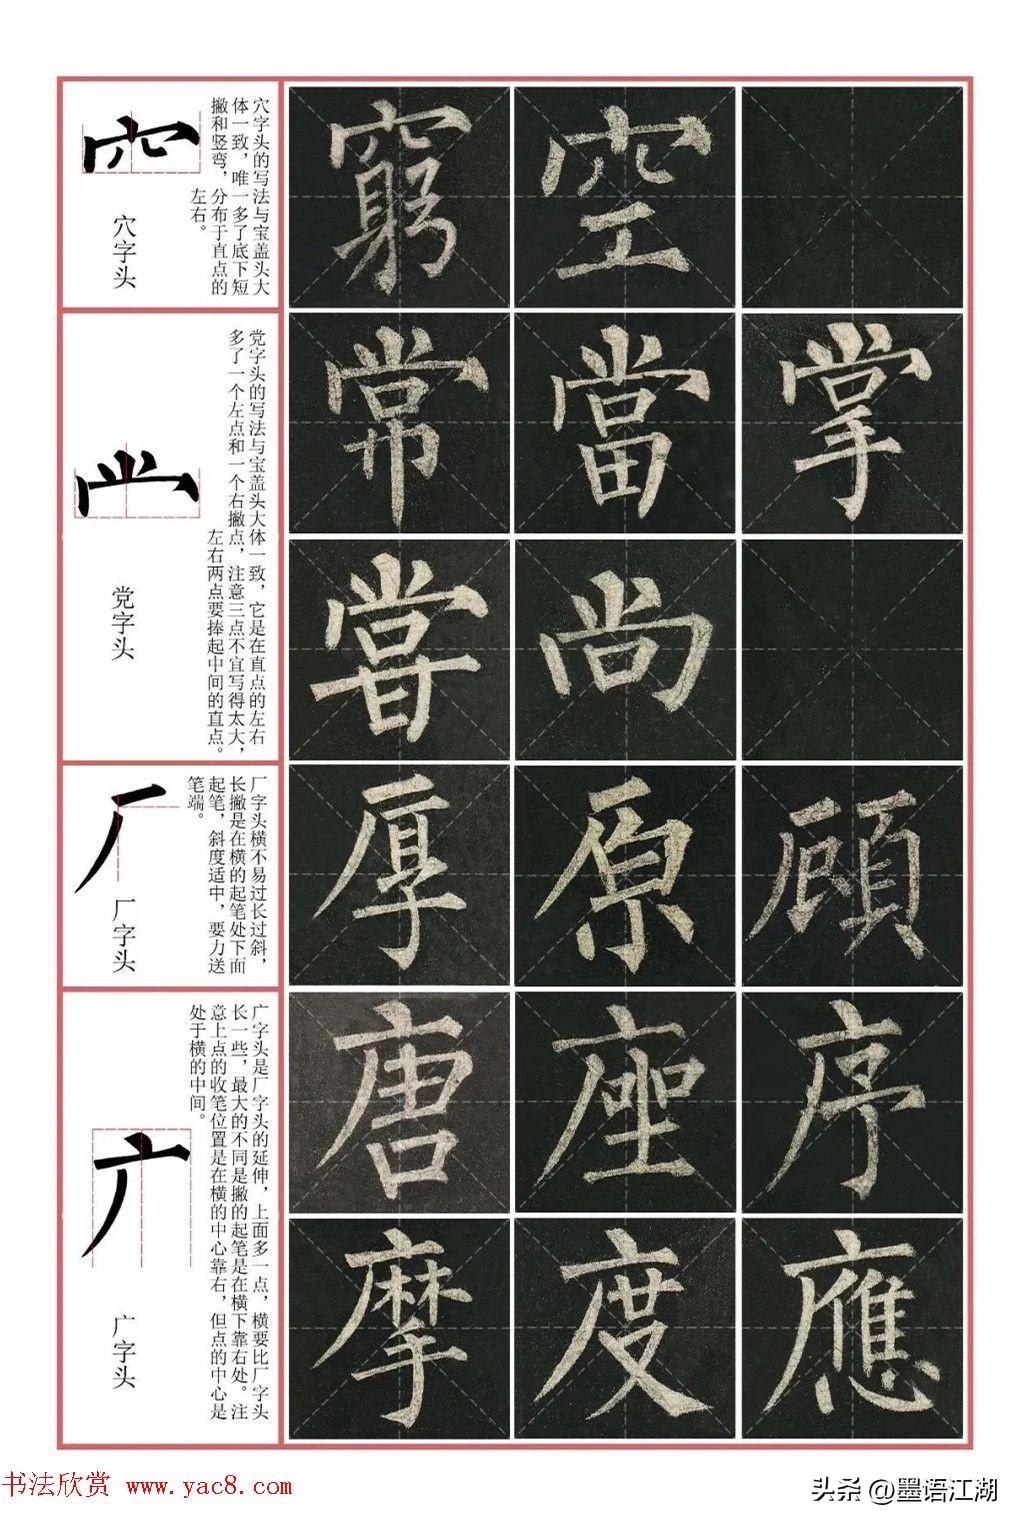 穴字头的写法与宝盖头大
体一致，唯一多了底下短
撇和竖弯，分布于直点的
左右。
穴字头
窮 空
党字头的写法与宝盖头大体一致，它是在直点的左右
多了一个左点和一个右撇点，注意三点不宜写得太大，
左右两点要捧起中间的直点。
党字头
常 當 掌
嘗 尚
厂字头横不易过长过斜，
长撇是在横的起笔处下面
起笔，斜度适中，要力送
笔端。
厂字头
厚 原 顧
广字头是厂字头的延伸，上面多一点，横要比厂字头
长一些，最大的不同是撇的起笔是在横下靠右处。注
意上点的收笔位置是在横的中心靠右，但点的中心是
处于横的中间。
广字头
唐 座 序
摩 度 應
书法欣赏 www.yac8.com
头条 @墨语江湖